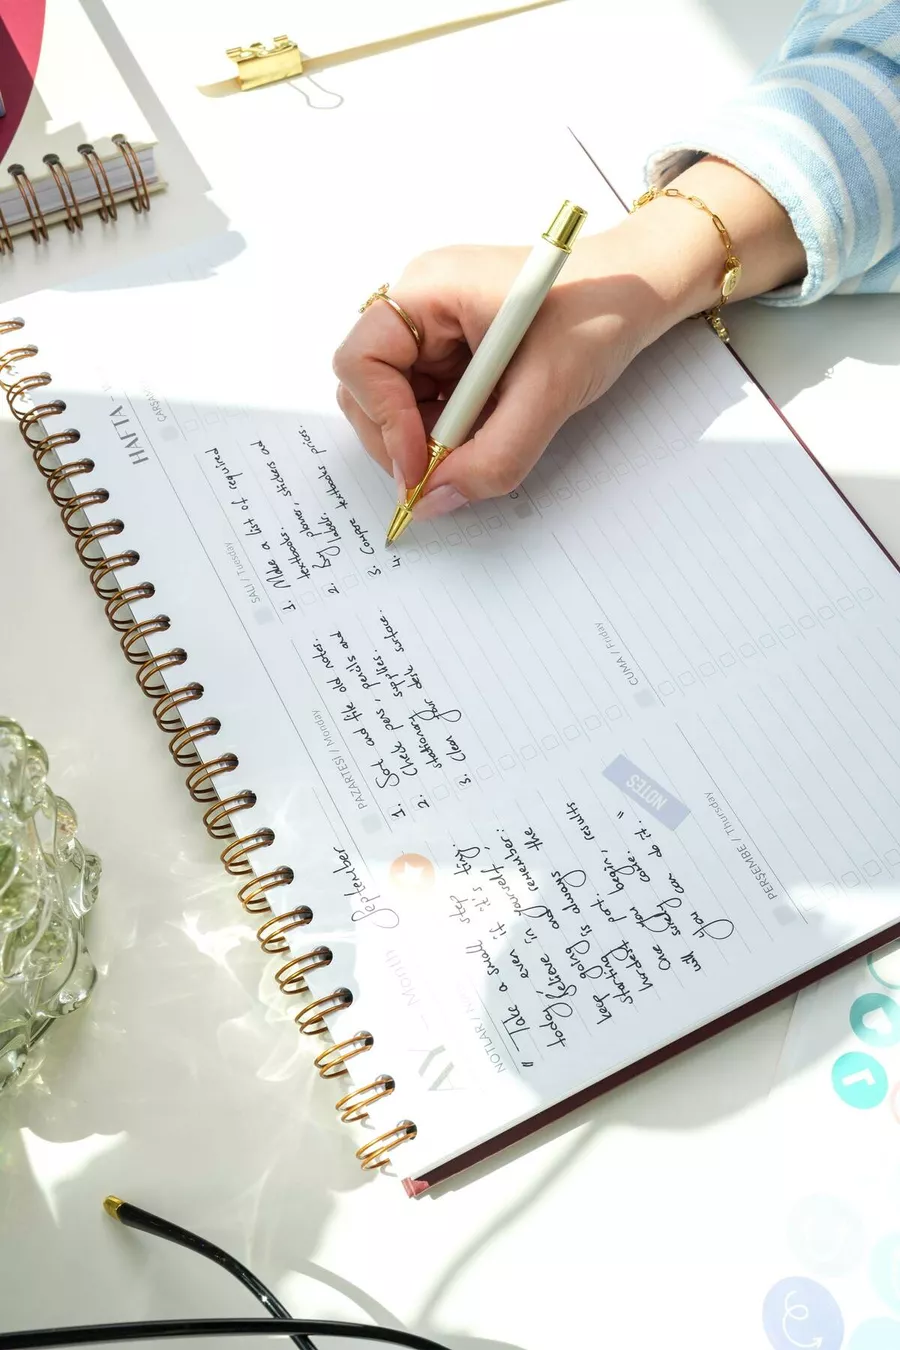 AY - Month September
HAFTA -
NOTLAR /
"Take a small step
today even it it's tiny.
Believe in yourself,
keep going and remember:
starting is always the
hardest part.
Once you begin, results
will surely come.
You can do it."
PAZARTESİ / Monday
1. Sort and file old notes.
2. Check pens, pencils and
stationary supplies.
3. Clean your desk surface.
SALI / Tuesday
1. Make a list of required
textbooks.
2. Buy planner, stickers and
labels.
3. Compare textbooks prices.
4.
ÇARŞA
NOTES
PERŞEMBE / Thursday
CUMA / Friday